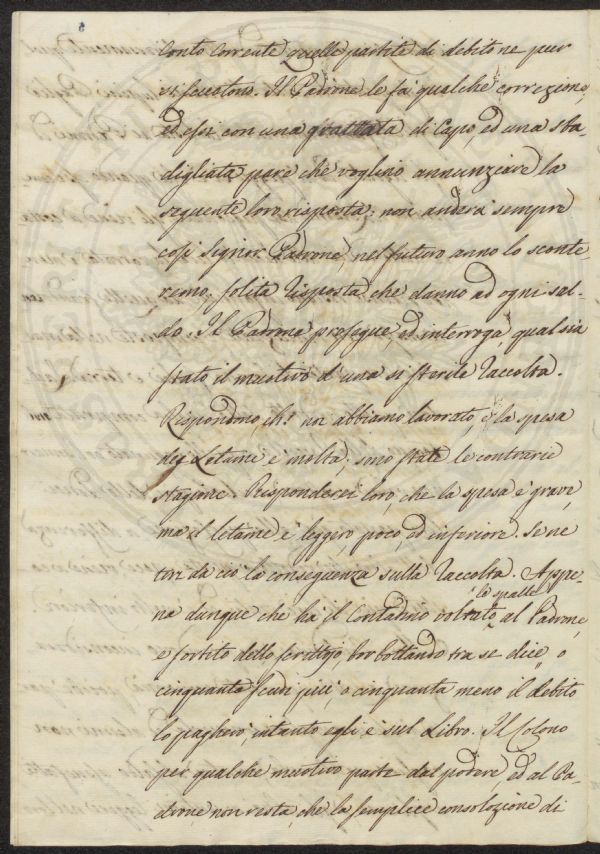 Conto Corrente quelle partite di debito ne pur
si scuotono. Il Padrone le fa qualche correzione,
ed essi con una grattata di Capo, ed una sba-
digliata pare che voglino annunziare la
seguente loro risposta: non anderà sempre
così Signor Padrone, nel futuro anno lo sconte-
remo, solita risposta che danno ad ogni sal-
do. Il Padrone prosegue, ed interroga, qual sia
stato il muotivo d'una si sterile raccolta.
Rispondono ih! un abbiamo lavorato, e la spesa
dei Letami è molta, sono state le contrarie
stagioni. Risponderei loro, che la spesa è grave,
ma il letame è leggero, poco, ed inferiore. Se ne
tiri da ciò la conseguenza sulla raccolta. Appe-
na dunque che ha il Contadino voltato le spalle al Padrone,
e sortito dello scrittojo borbottando tra se dice „ o
cinquanta scudi più, o cinquanta meno il debito
lo pagherò, intanto egli è sul Libro. Il Colono
per qualche muotivo parte dal podere ed al Pa-
drone non resta, che la semplice consolazione di